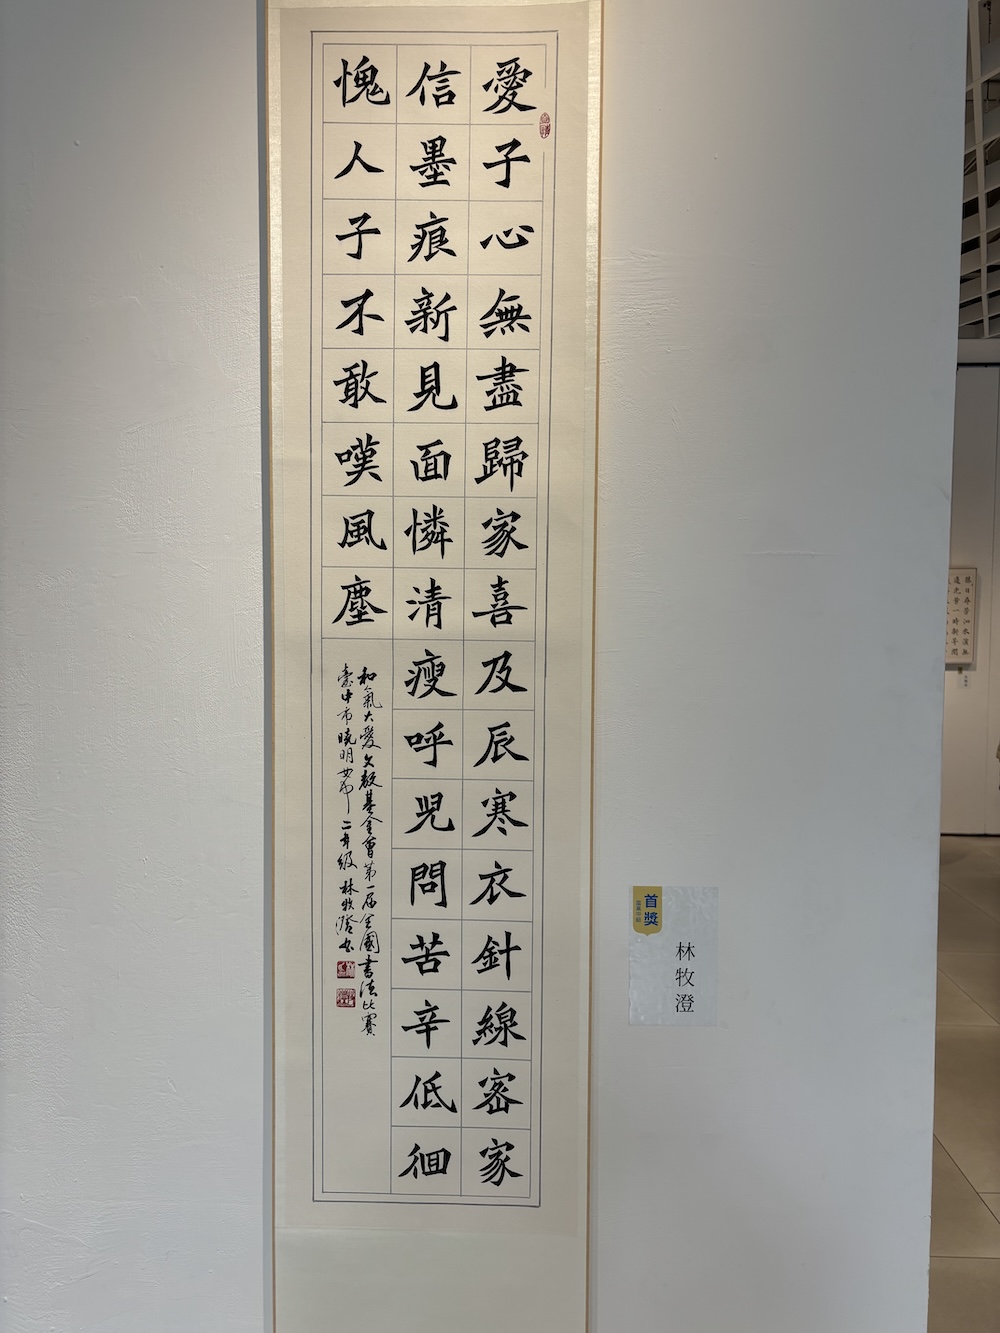 愛子心無盡歸家喜及辰寒衣針線密家
信墨痕新見面憐清瘦呼兒問苦辛低徊
愧人子不敢嘆風塵
和氣大愛文教基金會第一屆全國書法比賽
臺中市曉明女中二年級林牧澄書
首獎
林牧澄